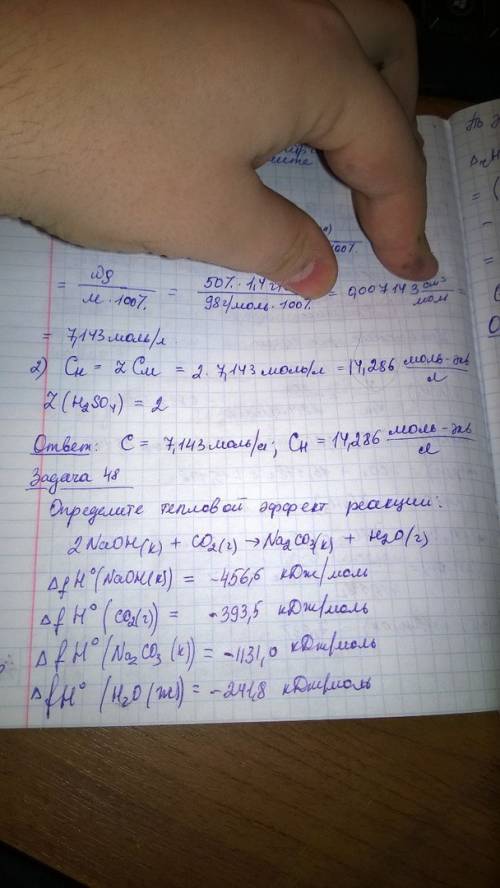 = ωρ / M · 100% = 50% · 1,4 / 98 г/моль · 100% = 0,007143 см³ / моль =
= 7,143 моль/л
2) Cн = Z Cм = 2 · 7,143 моль/л = 14,286 моль-экв / л
Z (H₂SO₄) = 2
Ответ: C = 7,143 моль/л; Cн = 14,286 моль-экв / л
Задача 48
Определите тепловой эффект реакции:
2NaOH(к) + CO₂(г) → Na₂CO₃(к) + H₂O(г)
ΔfH⁰(NaOH(к)) = -456,6 кДж/моль
ΔfH⁰(CO₂(г)) = -393,5 кДж/моль
ΔfH⁰(Na₂CO₃(к)) = -1131,0 кДж/моль
ΔfH⁰(H₂O(ж)) = -241,8 кДж/моль